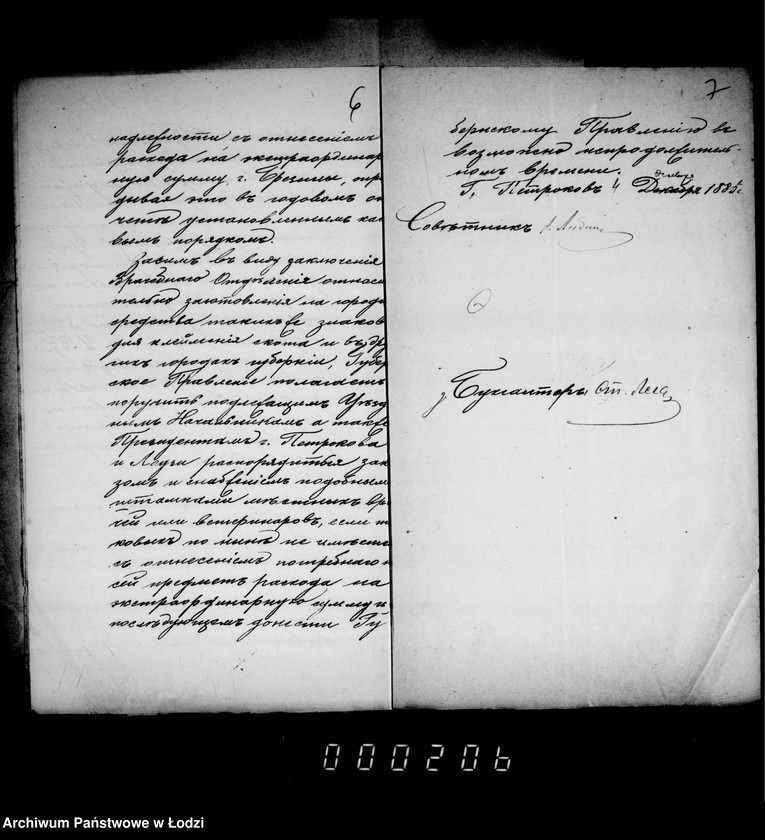 6
надлежности съ отнесеніемъ
расхода на экстраординар
ную сумму г. Брезины, опр
дывая это въ годовомъ от
четѣ установленнымъ каз
вымъ порядкомъ.
Засимъ въ виду заключенія
Врачебнаго Отдѣленія относи
тельно заготовленія на городс
средства такихъ же знаков
для клейменія скота и въ др
гихъ городахъ губерніи, Губер
ское Правленіе полагаетъ
поручить подлежащимъ Уѣзд
нымъ Начальникамъ а также
Президентамъ г. Петрокова
и Лодзи распорядиться зак
зомъ и снабженіемъ подобными
штампами мѣстныхъ вра
чей или ветеринаровъ, если т
ковыхъ по нынѣ не имѣетс
съ отнесеніемъ потребнаго н
сей предметъ расхода на
экстраординарную сумму и
послѣдующемъ донести Гу
7
бернскому Правленію въ
возможно непродолжитель-
номъ времени.
Г. Петроковъ " Декабря 1885 г.
Совѣтникъ
Бухгалтеръ
000206
Archiwum Państwowe w Łodzi